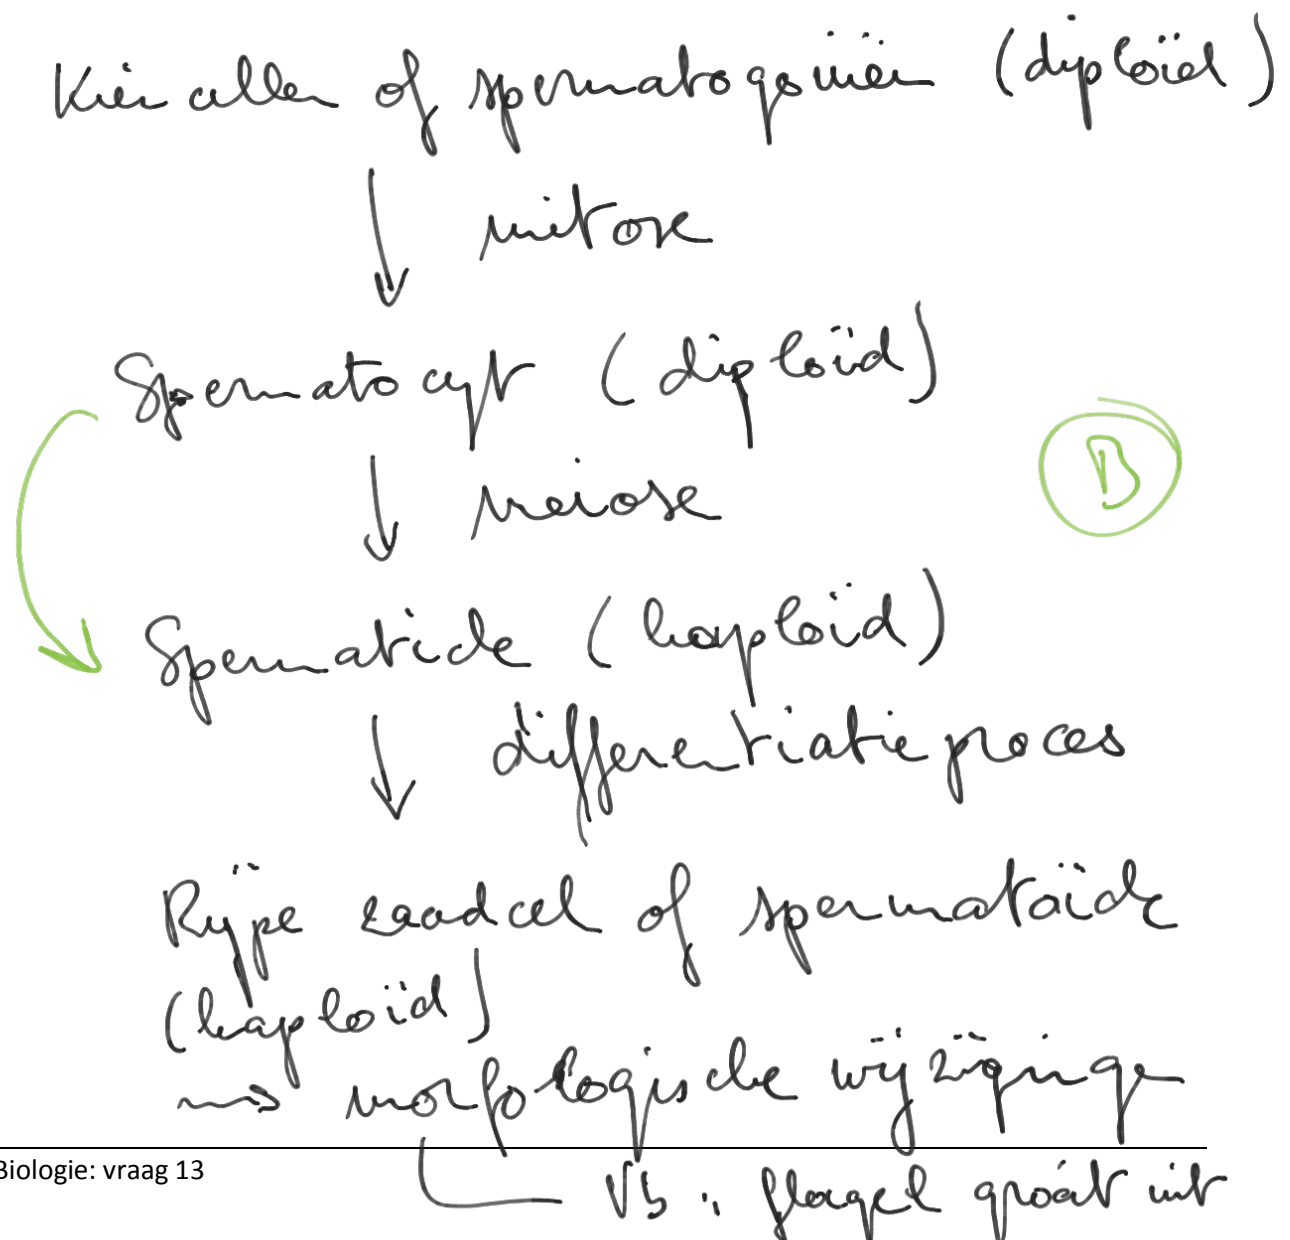 Kiemcellen of spermatogoniën (diploïd)
mitose
Spermatocyt (diploïd)
B
meiose
Spermatide (haploïd)
differentiatieproces
Rijpe zaadcel of spermatoïde
(haploïd)
morfologische wijzigingen
Biologie: vraag 13
Vb: flagel groeit uit